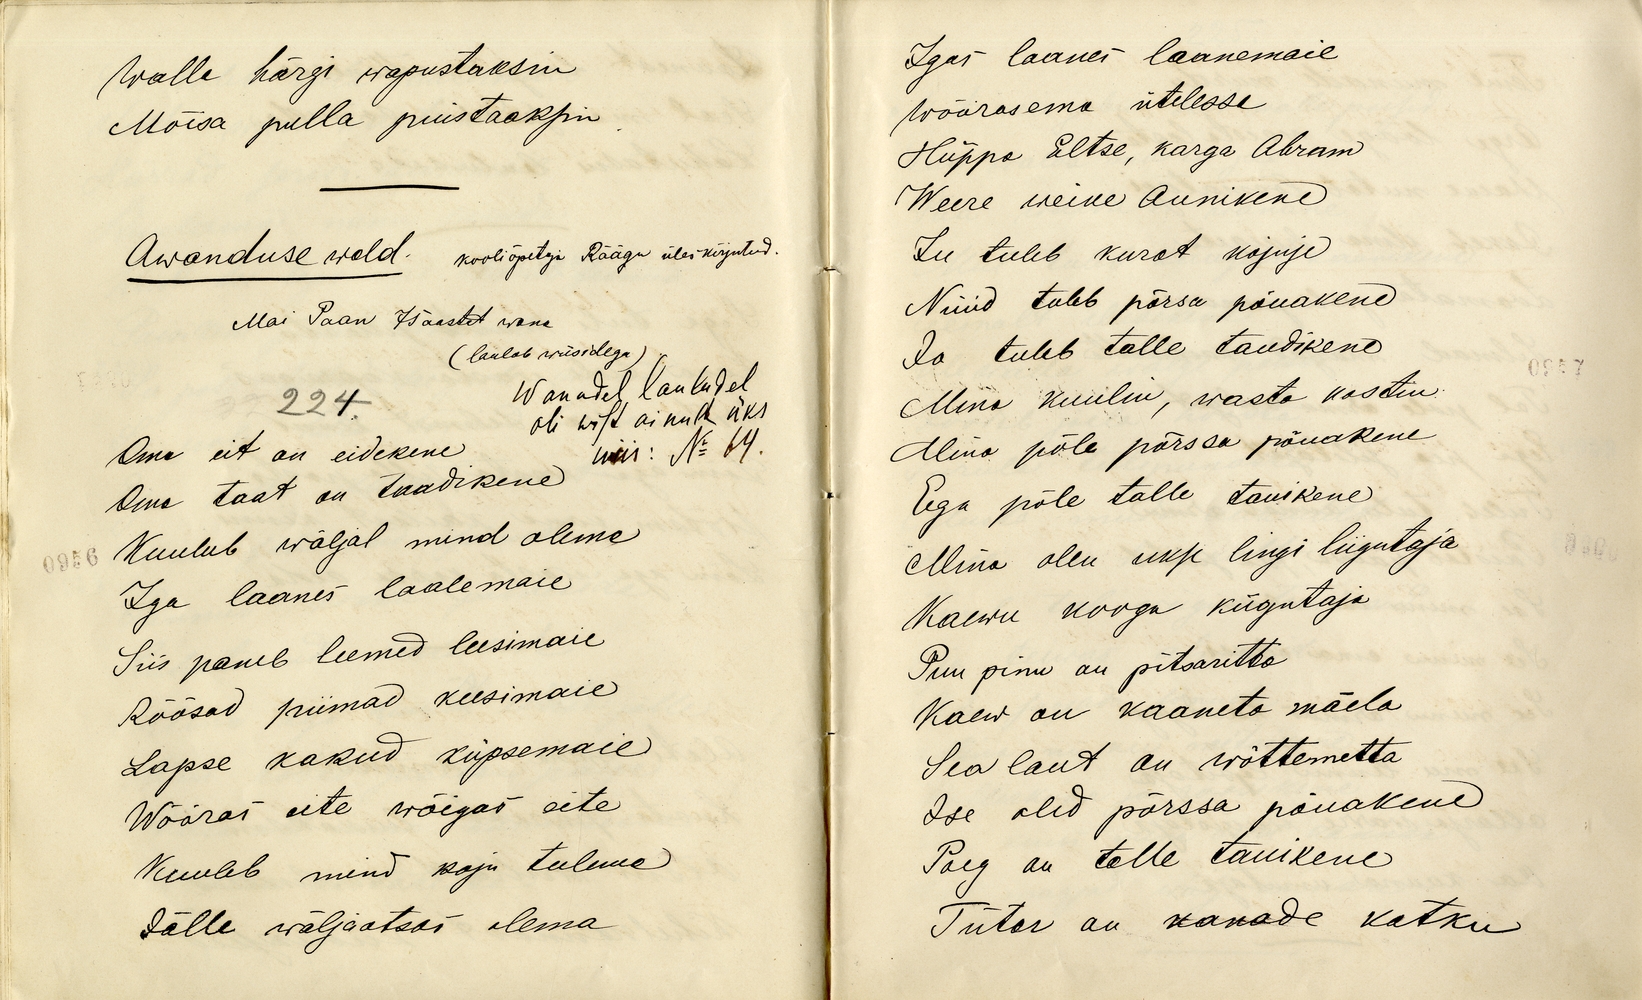 Walla härgi wapustaksin
Mõisa pulla puistaaksin.
Awanduse wald. kooliõpetaja Räägu üleskirjutud.
Mai Paan 75aastat wana
(laulab wiisidega)
Wanadel lauludel
oli wist ainult üks
wiis: № 64.
224.
Oma eit on eidekene
Oma taat on taadikene
Kuuleb wäljal mind olema
Iga laanes laalemaie
Siis paneb leemed leesimaie
Röösad piimad keesimaie
Lapse kakud küpsemaie
Wõõras eite wõigas eite
Kuuleb mind koju tulema
Jälle wäljaotsas olema
Igas laanes laanemaie
Wõõrasema ütelesse
Hüppa Eltse, karga Abram
Weere weike Annikene
Ju tuleb kurat kojuje
Nüüd tuleb põrsa põuakene
Ja tuleb talle taudikene
Mina kuulin, wasta kostin
Mina põle põrssa põuakene
Ega põle talle tauikene
Mina olen ukse lingi liigutaja
Kaewu kooga kiigutaja
Puu pinu on pitsaritta
Kaew on kaaneta mäela
Sea laut on wõttemetta
Ise oled põrssa põuakene
Poeg on talle tauikene
Tütar on kanade katku